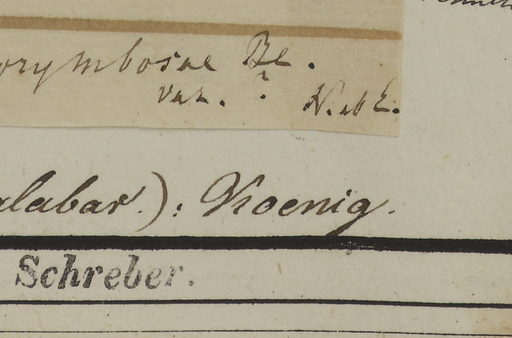 orymbosae Be.
var. ?
N. ab E.
alabar.): Koenig.
Schreber.